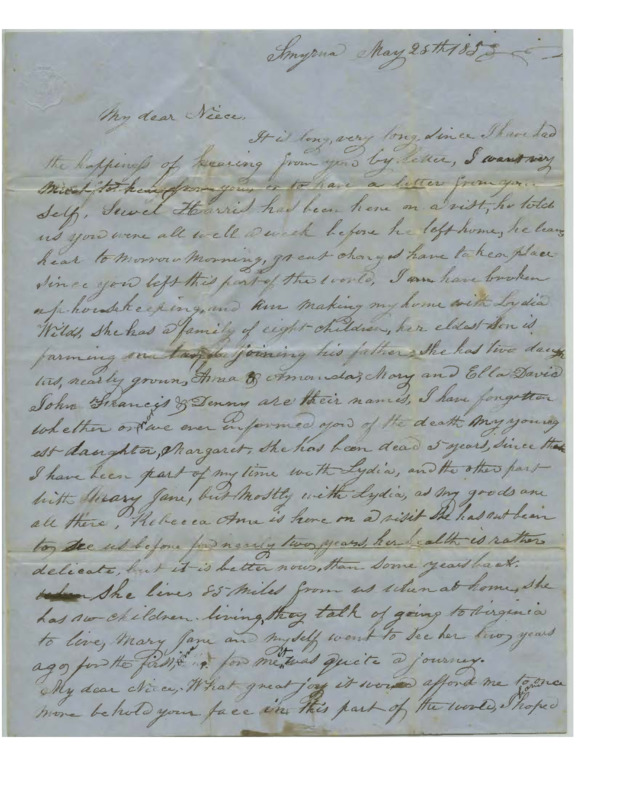 Smyrna May 25th 185
My dear Niece.
It is long, very long, since I have had
the happiness of hearing from you by letter, I want very
much to hear from you, or to have a letter from your
self. Jewel Harris has been here on a visit, he told
us you were all well a week before he left home, he leav
hear to morrow Morning, great changes have taken place
since you left this part of the world, I am have broken
up housekeeping, and am making my home with Lydia
Wilds, she has a family of eight children, her eldest son is
farming on joining his father, she has two daugh
ters, nearly grown, Anna & Amanda, Mary and Ella David
John Francis & Denny are their names, I have forgotten
whether or have ever informed you of the death my young
est daughter, Margaret, she has been dead 5 years, since that
I have been part of my time with Lydia, and the other part
with Mary Jane, but mostly with Lydia, as my goods are
all there, Rebecca Ann is here on a visit she has not bein
to see us before for nearly two years, her health is rather
delicate, but it is better now, than some years back.
She lives 85 miles from us when at home, she
has no children living, they talk of going to virginia
to live, Mary Jane and myself went to see her two years
ago, for the first time, for me it was quite a journey.
My dear Niece, What great joy it would afford me to once
more behold your face in this part of the world, I hoped